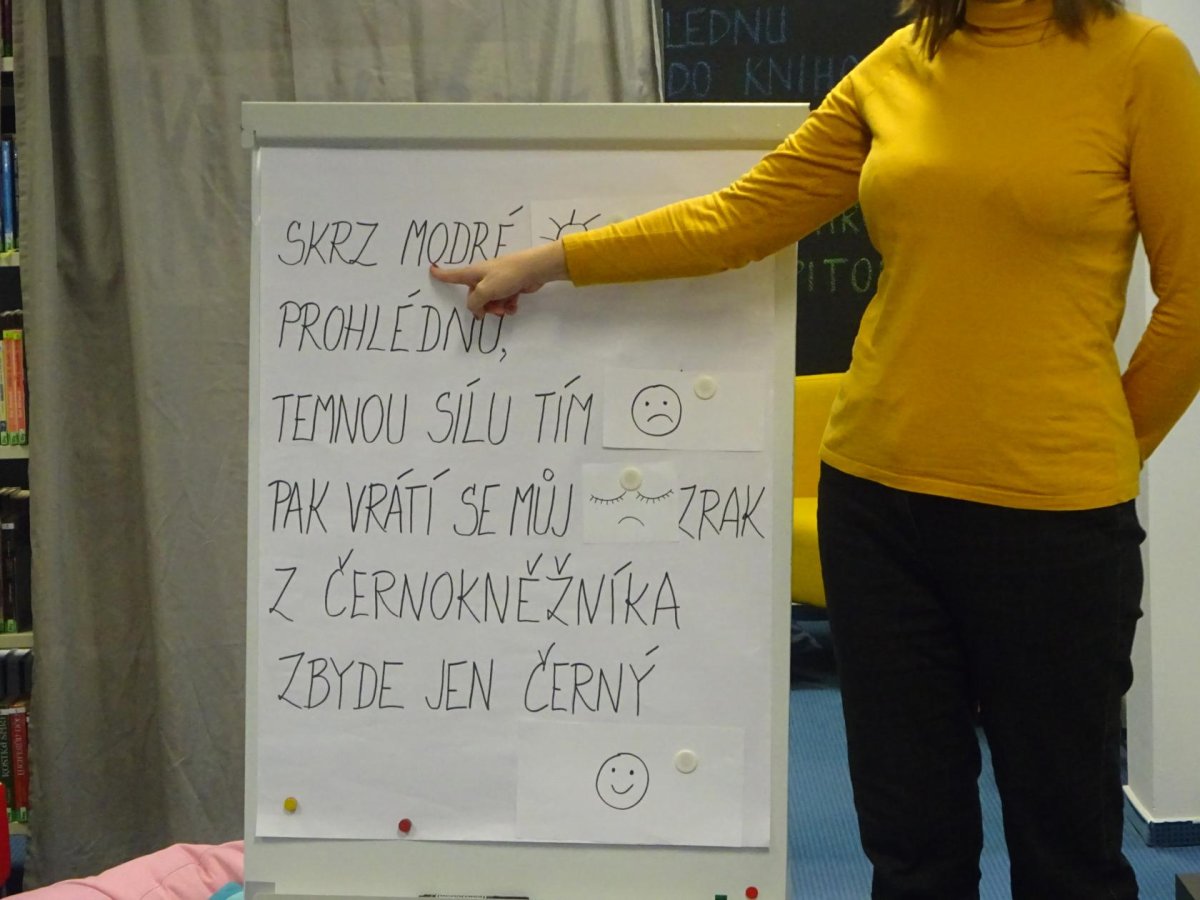 LEDNU
DO KNIHO
SKRZ MODRÉ
PROHLÉDNU,
TEMNOU SÍLU TÍM
PAK VRÁTÍ SE MŮJ ZRAK
Z ČERNOKNĚŽNÍKA
ZBYDE JEN ČERNÝ
PITO